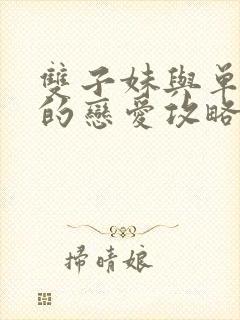 雙子妹與單
的戀愛攻略
掃晴娘